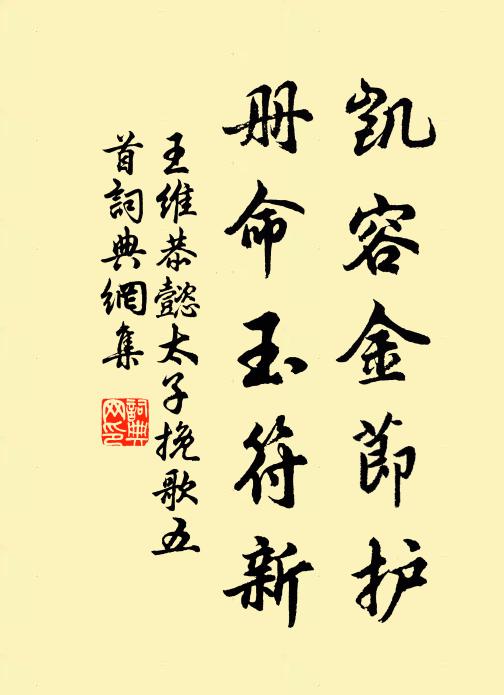 凯容金節护
册命玉符新
王维恭懿太子挽歌五
首詞典網集
詞典網印